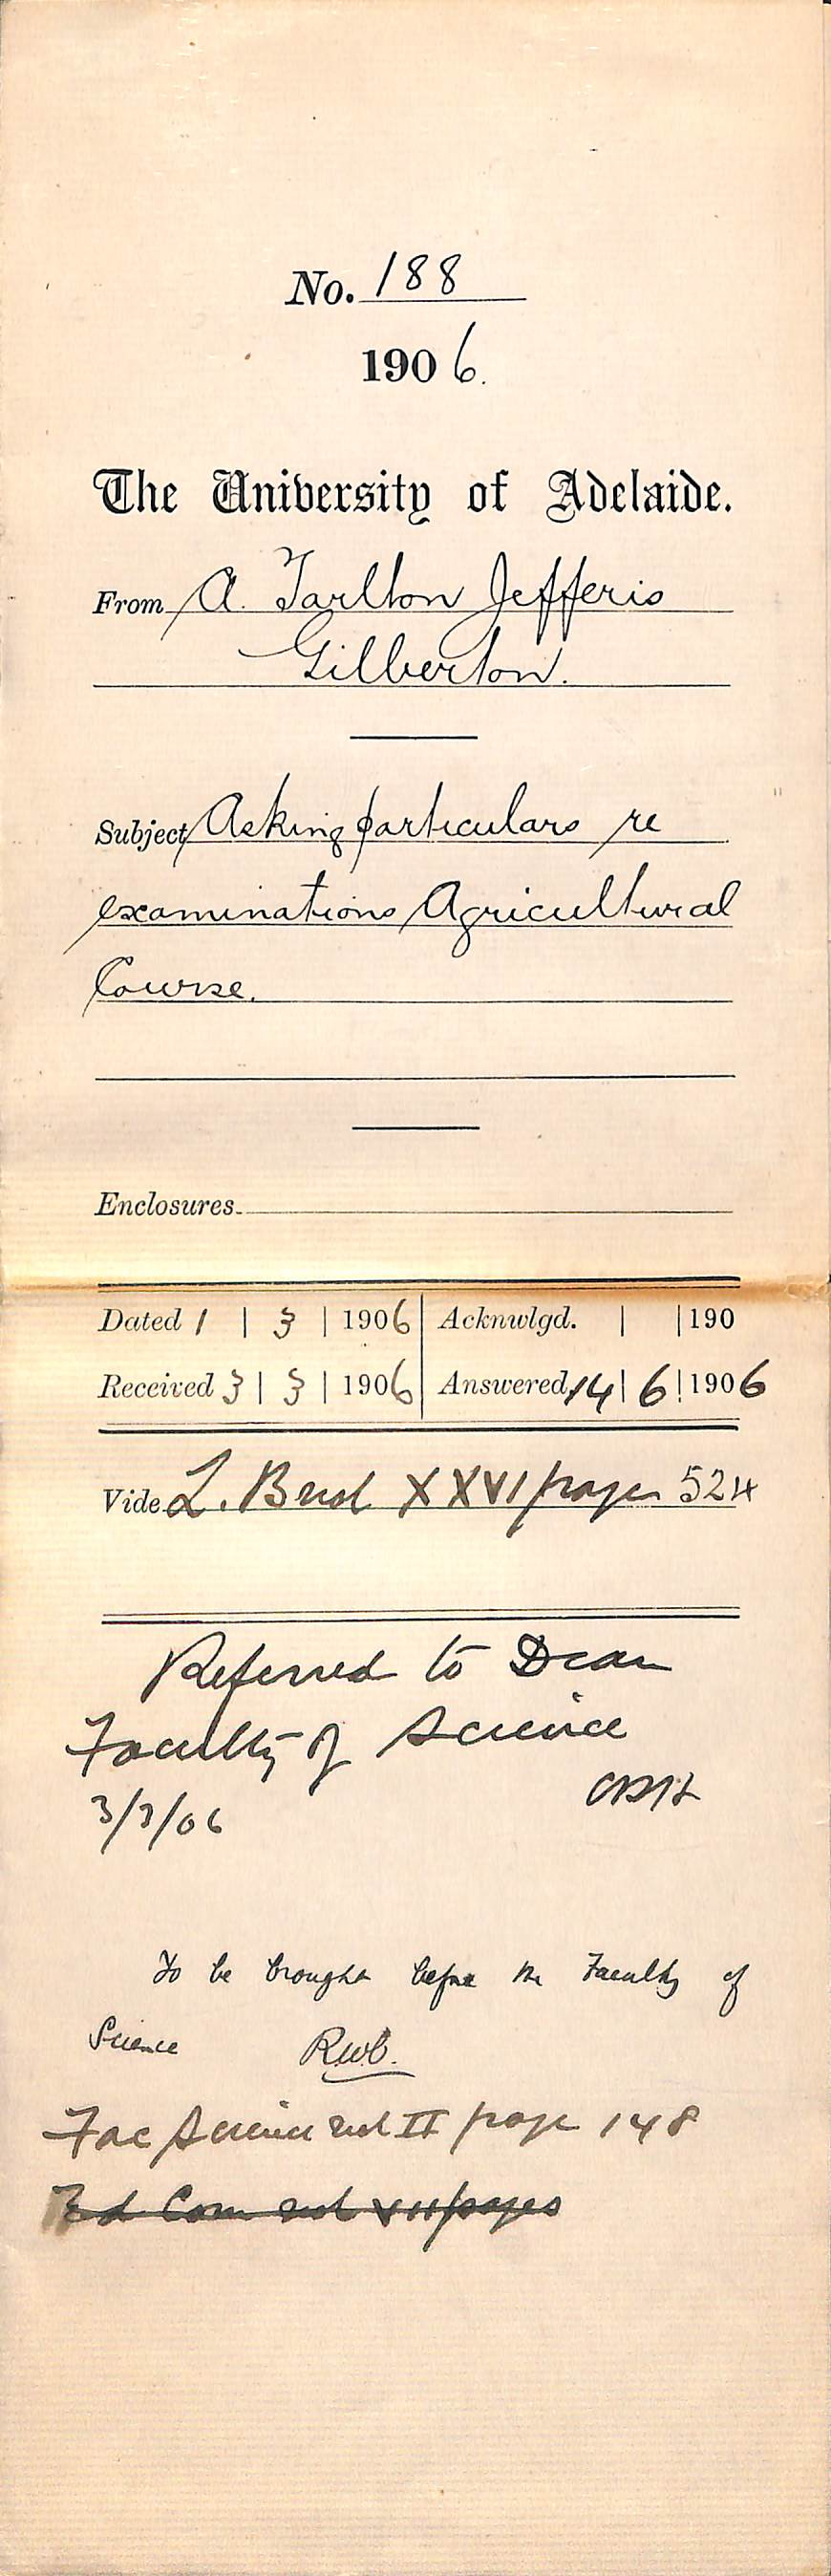 No. 188
1906.
The University of Adelaide.
From A. Tarlton Jefferis
Gilberton.
Subject Asking particulars re
examinations Agricultural
Course.
Enclosures.
Dated 1 | 3 | 1906 Acknwlgd. | | 190
Received 3 | 3 | 1906 Answered 14 | 6 | 1906
Vide L. Book XXVI page 524
Referred to Dean
Faculty of Science
3/3/06
To be brought before the Faculty of
Science R.W.C.
Fac Science vol II page 148
Ed Com vol VII pages